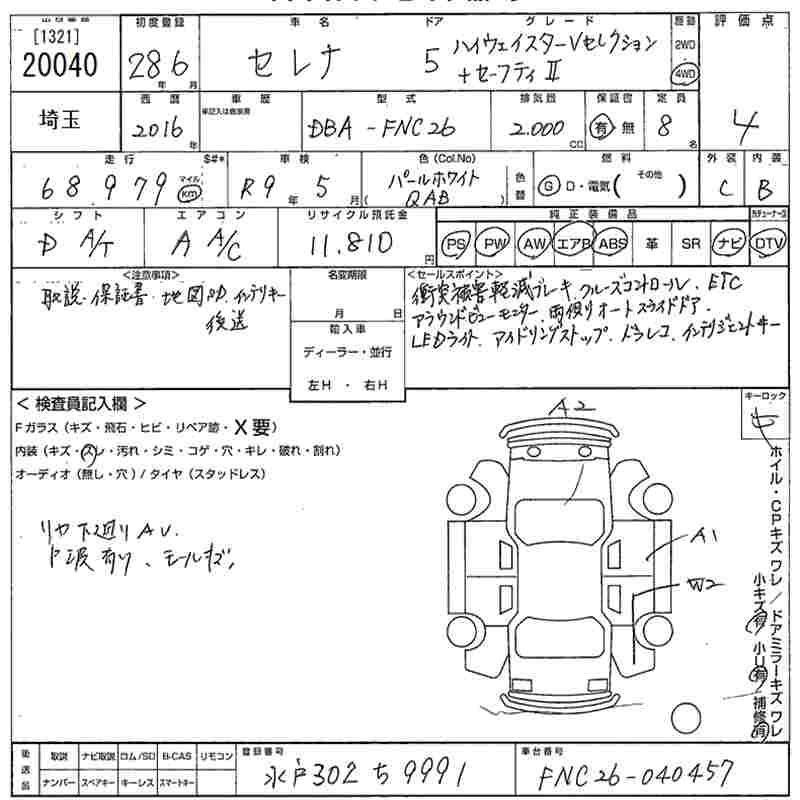 [1321]
20040
初度登録
28 6
年 月
車名
セレナ
ドア
5
グレード
ハイウェイスターVセレクション
+セーフティⅡ
駆動
2WD
4WD
評価点
4
埼玉
西暦
2016
年
車歴
型式
DBA-FNC26
排気量
2.000
CC
保証書
有 無
定員
8
名
走行
68979
マイル
km
S#*
車検
R9 年 5 月
色(Col.No)
パールホワイト
( QAB )
色替
燃料
G D・電気( その他 )
外装
C
内装
B
シフト
D A/T
エアコン
A A/C
リサイクル預託金
11.810
円
純正装備品
PS PW AW エアB ABS 革 SR ナビ DTV
<注意事項>
取説・保証書・地図SD、インテリキー
後送
名変期限
月 日
輸入車
ディーラー・並行
左H ・ 右H
<セールスポイント>
衝突被害軽減ブレーキ、クルーズコントロール、ETC
アラウンドビューモニター、両側オートスライドドア、
LEDライト、アイドリングストップ、ドラレコ、インテリジェントキー
<検査員記入欄>
Fガラス(キズ・飛石・ヒビ・リペア跡・X要)
内装(キズ・スレ・汚れ・シミ・コゲ・穴・キレ・破れ・割れ)
オーディオ(無し・穴)/タイヤ(スタッドレス)
リヤ下廻りAU.
ド汲有り、モールキズ、
A2
A1
W2
キーロック
ホイル・CPキズ ワレ/ドアミラーキズ ワレ
小キズ有 小U有 補修有
後送品
取説 ナビ取説 ロム/SD B-CAS リモコン
ナンバー スペアキー キーレス スマートキー
登録番号
水戸302ち9991
車台番号
FNC26-040457